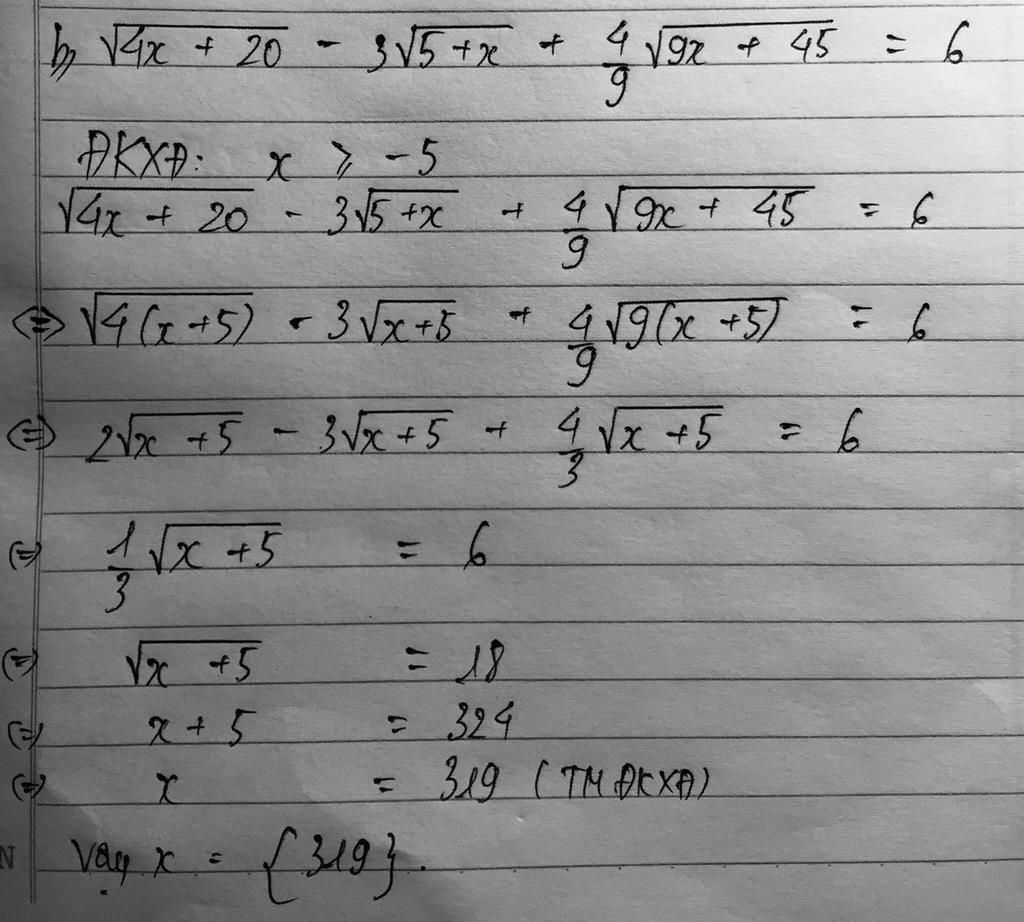 b, √(4x + 20) - 3√(5+x) + 4/9 √(9x + 45) = 6
ĐKXĐ: x ⩾ -5
√(4x + 20) - 3√(5+x) + 4/9 √(9x + 45) = 6
⇔ √(4(x+5)) - 3√(x+5) + 4/9 √(9(x+5)) = 6
⇔ 2√(x+5) - 3√(x+5) + 4/3 √(x+5) = 6
⇔ 1/3 √(x+5) = 6
⇔ √(x+5) = 18
⇔ x + 5 = 324
⇔ x = 319 (TM ĐKXĐ)
N Vậy x = {319}.